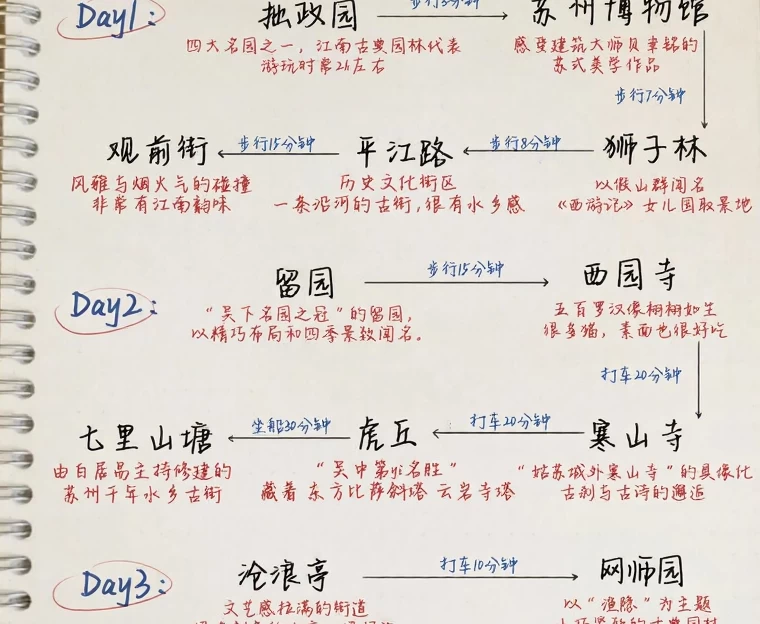 Day1:
拙政园
步行5分钟
苏州博物馆
四大名园之一，江南古典园林代表
游玩时常2h左右
感受建筑大师贝聿铭的
苏式美学作品
步行7分钟
观前街
步行15分钟
平江路
步行8分钟
狮子林
风雅与烟火气的碰撞
非常有江南韵味
历史文化街区
一条沿河的古街，很有水乡感
以假山群闻名
《西游记》女儿国取景地
Day2:
留园
步行15分钟
西园寺
“吴下名园之冠”的留园，
以精巧布局和四季景致闻名。
五百罗汉像栩栩如生
很多猫，素面也很好吃
打车20分钟
七里山塘
坐船30分钟
虎丘
打车20分钟
寒山寺
由白居易主持修建的
苏州千年水乡古街
“吴中第一名胜”
藏着东方比萨斜塔 云岩寺塔
“姑苏城外寒山寺”的具像化
古刹与古诗的邂逅
Day3:
沧浪亭
打车10分钟
网师园
文艺感拉满的街道
以“渔隐”为主题